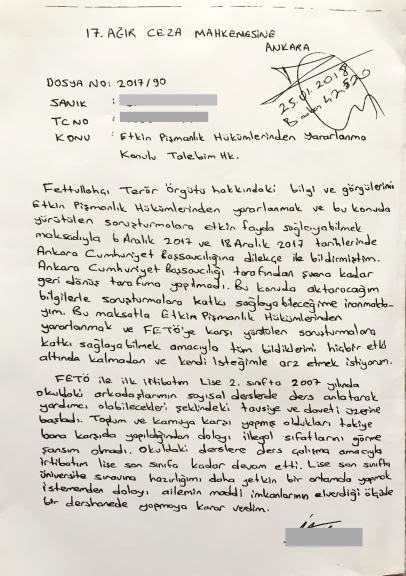 17. AĞIR CEZA MAHKEMESİNE
ANKARA
25.01.2018
DOSYA NO: 2017/90
SANIK :
TC NO :
KONU : Etkin Pişmanlık Hükümlerinden Yararlanma
Konulu Talebim Hk.
Fettullahçı Terör Örgütü hakkındaki bilgi ve görgülerimi
Etkin Pişmanlık Hükümlerinden yararlanmak ve bu konuda
yürütülen soruşturmalara etkin fayda sağlayabilmek
maksadıyla 6 Aralık 2017 ve 18 Aralık 2017 tarihlerinde
Ankara Cumhuriyet Başsavcılığına dilekçe ile bildirmiştim.
Ankara Cumhuriyet Başsavcılığı tarafından şuana kadar
geri dönüş tarafıma yapılmadı. Bu konuda aktaracağım
bilgilerle soruşturmalara katkı sağlayabileceğime inanmakta-
yım. Bu maksatla Etkin Pişmanlık Hükümlerinden
yararlanmak ve FETÖ'ye karşı yürütülen soruşturmalara
katkı sağlayabilmek amacıyla tüm bildiklerimi hiçbir etki
altında kalmadan ve kendi isteğimle arz etmek istiyorum.
FETÖ ile ilk irtibatım Lise 2. sınıfta 2007 yılında
okuldaki arkadaşlarımın sayısal derslerde ders anlatarak
yardımcı olabilecekleri şeklindeki tavsiye ve daveti üzerine
başladı. Toplum ve kamuya karşı yapmış oldukları takiye
bana karşıda yapıldığından dolayı illegal sıfatlarını görme
şansım olmadı. Okuldaki derslere ders çalışma amacıyla
irtibatım lise son sınıfa kadar devam etti. Lise son sınıfta
üniversite sınavına hazırlığımı daha yetkin bir ortamda yapmak
istememden dolayı ailemin maddi imkanlarının elverdiği ölçüde
bir dershanede yapmaya karar verdim.